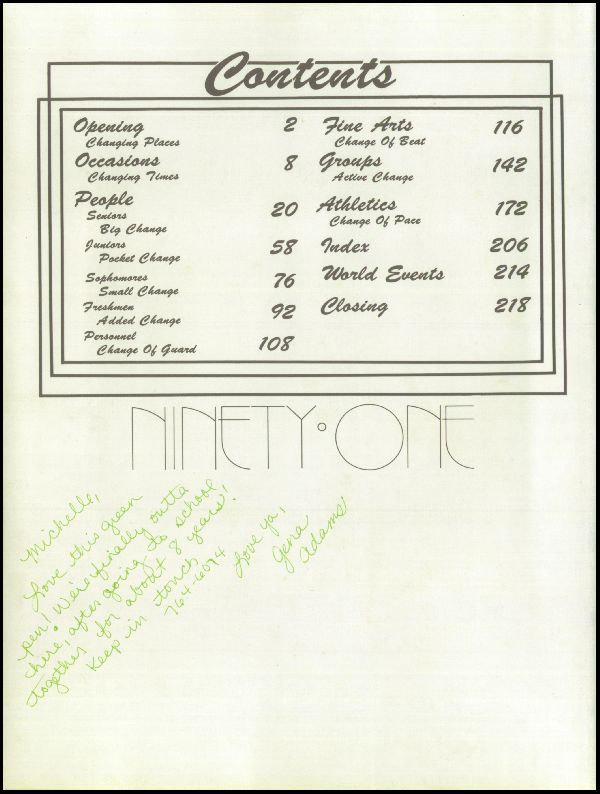 Contents
Opening 2
Changing Places
Occasions 8
Changing Times
People 20
Seniors
Big Change
Juniors 58
Pocket Change
Sophomores 76
Small Change
Freshmen 92
Added Change
Personnel 108
Change Of Guard
Fine Arts 116
Change Of Beat
Groups 142
Active Change
Athletics 172
Change Of Pace
Index 206
World Events 214
Closing 218
NINETY·ONE
Michelle,
Love this green
pen! We're finally outta
here, after going to school
together for about 8 years!
Keep in touch
764-6094
Love ya,
Gena
Adams!